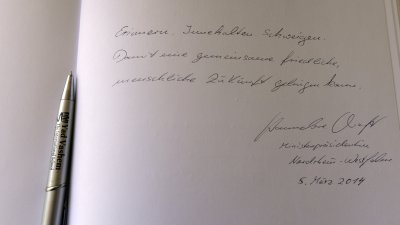 Erinnern. Innehalten. Schweigen.
Damit eine gemeinsame friedliche,
menschliche Zukunft gelingen kann.
Hannelore Kraft
Ministerpräsidentin
Nordrhein-Westfalen
5. März 2014
Yad Vashem